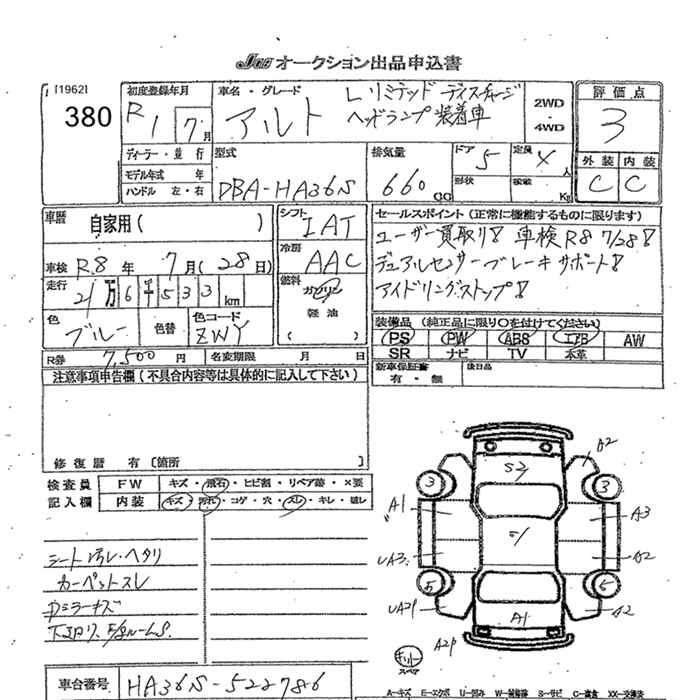 JU オークション出品申込書
[1962]
380
初度登録年月
R 1 7月
車名・グレード
アルト Lリミテッド ディスチャージ
ヘッドランプ装着車
2WD
・
4WD
評価点
3
外装 内装
C C
ディーラー・並行
モデル年式 年
ハンドル 左・右
型式
DBA-HA36S
排気量
660 CC
ドア 5
形状
定員 4人
積載 Kg
車歴 自家用( )
車検 R8年 7月(28日)
走行 2万6千533km
色 ブルー 色替
色コード ZWY
シフト IAT
冷房 AAC
燃料 ガソリン
軽油
( )
セールスポイント(正常に機能するものに限ります)
ユーザー買取り! 車検R8 7/28!
デュアルセンサーブレーキサポート!
アイドリングストップ!
装備品(純正品に限り○を付けてください)
PS PW ABS エアB AW
SR ナビ TV 本革
新車保証書
有・無
後日品
R券 7,500円
名変期限 月 日
注意事項申告欄(不具合内容等は具体的に記入して下さい)
修復歴 有〔箇所 〕
検査員 FW キズ・飛石・ヒビ割・リペア跡・×要
記入欄 内装 キズ・汚れ・コゲ・穴・スレ・キレ・破レ
シート汚レ・ヘタリ
カーペットスレ
ミラーキズ
下廻り
A2
S2
3 3
A1 A3
UA3 A2
5 5
UA2 A2
A1
A2
スペア
車台番号 HA36S-522786
A-キズ E-エクボ U-凹み W-補修跡 S-サビ C-腐食 XX-交換済